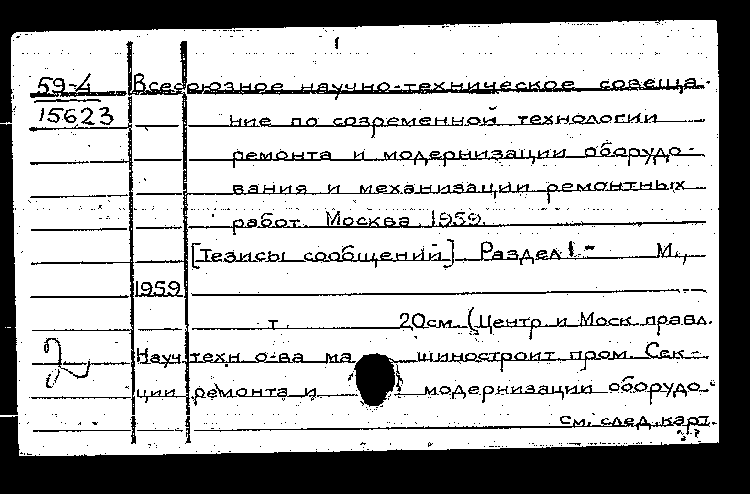 1
59-4 Всесоюзное научно-техническое совеща-
15623 ние по современной технологии
ремонта и модернизации оборудо-
вания и механизации ремонтных
работ. Москва 1959.
[Тезисы сообщений]. Раздел 1- М.,
1959
т. 20см. (Центр и Моск правл.
2 Науч техн о-ва машиностроит пром. Сек-
ции ремонта и модернизации оборудо-
см. след. карт.